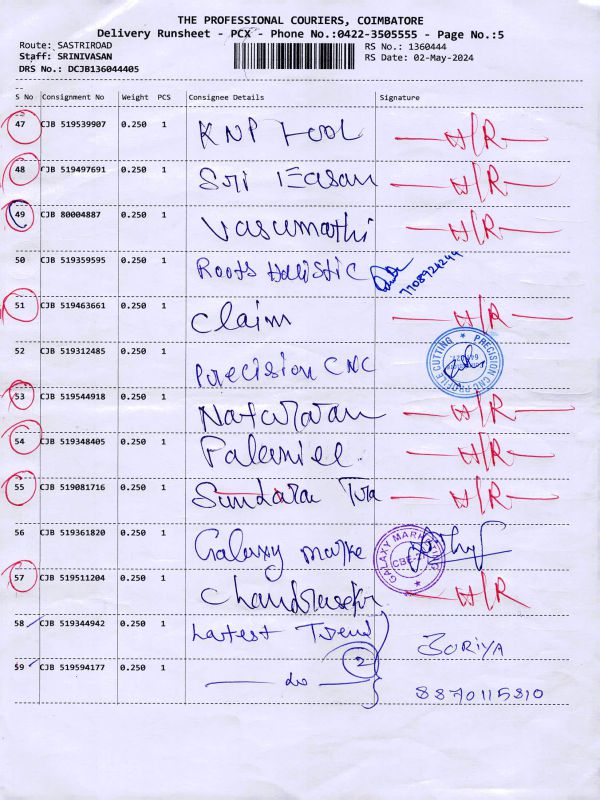 THE PROFESSIONAL COURIERS, COIMBATORE
Delivery Runsheet - PCX - Phone No.:0422-3505555 - Page No.:5
Route: SASTRIROAD RS No.: 1360444
Staff: SRINIVASAN RS Date: 02-May-2024
DRS No.: DCJB136044405
S No Consignment No Weight PCS Consignee Details Signature
47 CJB 519539907 0.250 1 KNP Tool N/R
48 CJB 519497691 0.250 1 Sri Easan N/R
49 CJB 80004887 0.250 1 Vasumathi N/R
50 CJB 519359595 0.250 1 Roots Holistic 7708924244
51 CJB 519463661 0.250 1 Claim N/R
52 CJB 519312485 0.250 1 Precision CNC PRECISION CNC PROFILE CUTTING
53 CJB 519544918 0.250 1 Natarajan N/R
54 CJB 519348405 0.250 1 Palaniel N/R
55 CJB 519081716 0.250 1 Sundaram N/R
56 CJB 519361820 0.250 1 Galaxy marke GALAXY MARKETING
57 CJB 519511204 0.250 1 Chandrasekr N/R
58 CJB 519344942 0.250 1 Latest Trend ZURIYA
59 CJB 519594177 0.250 1 do 2 8870115810